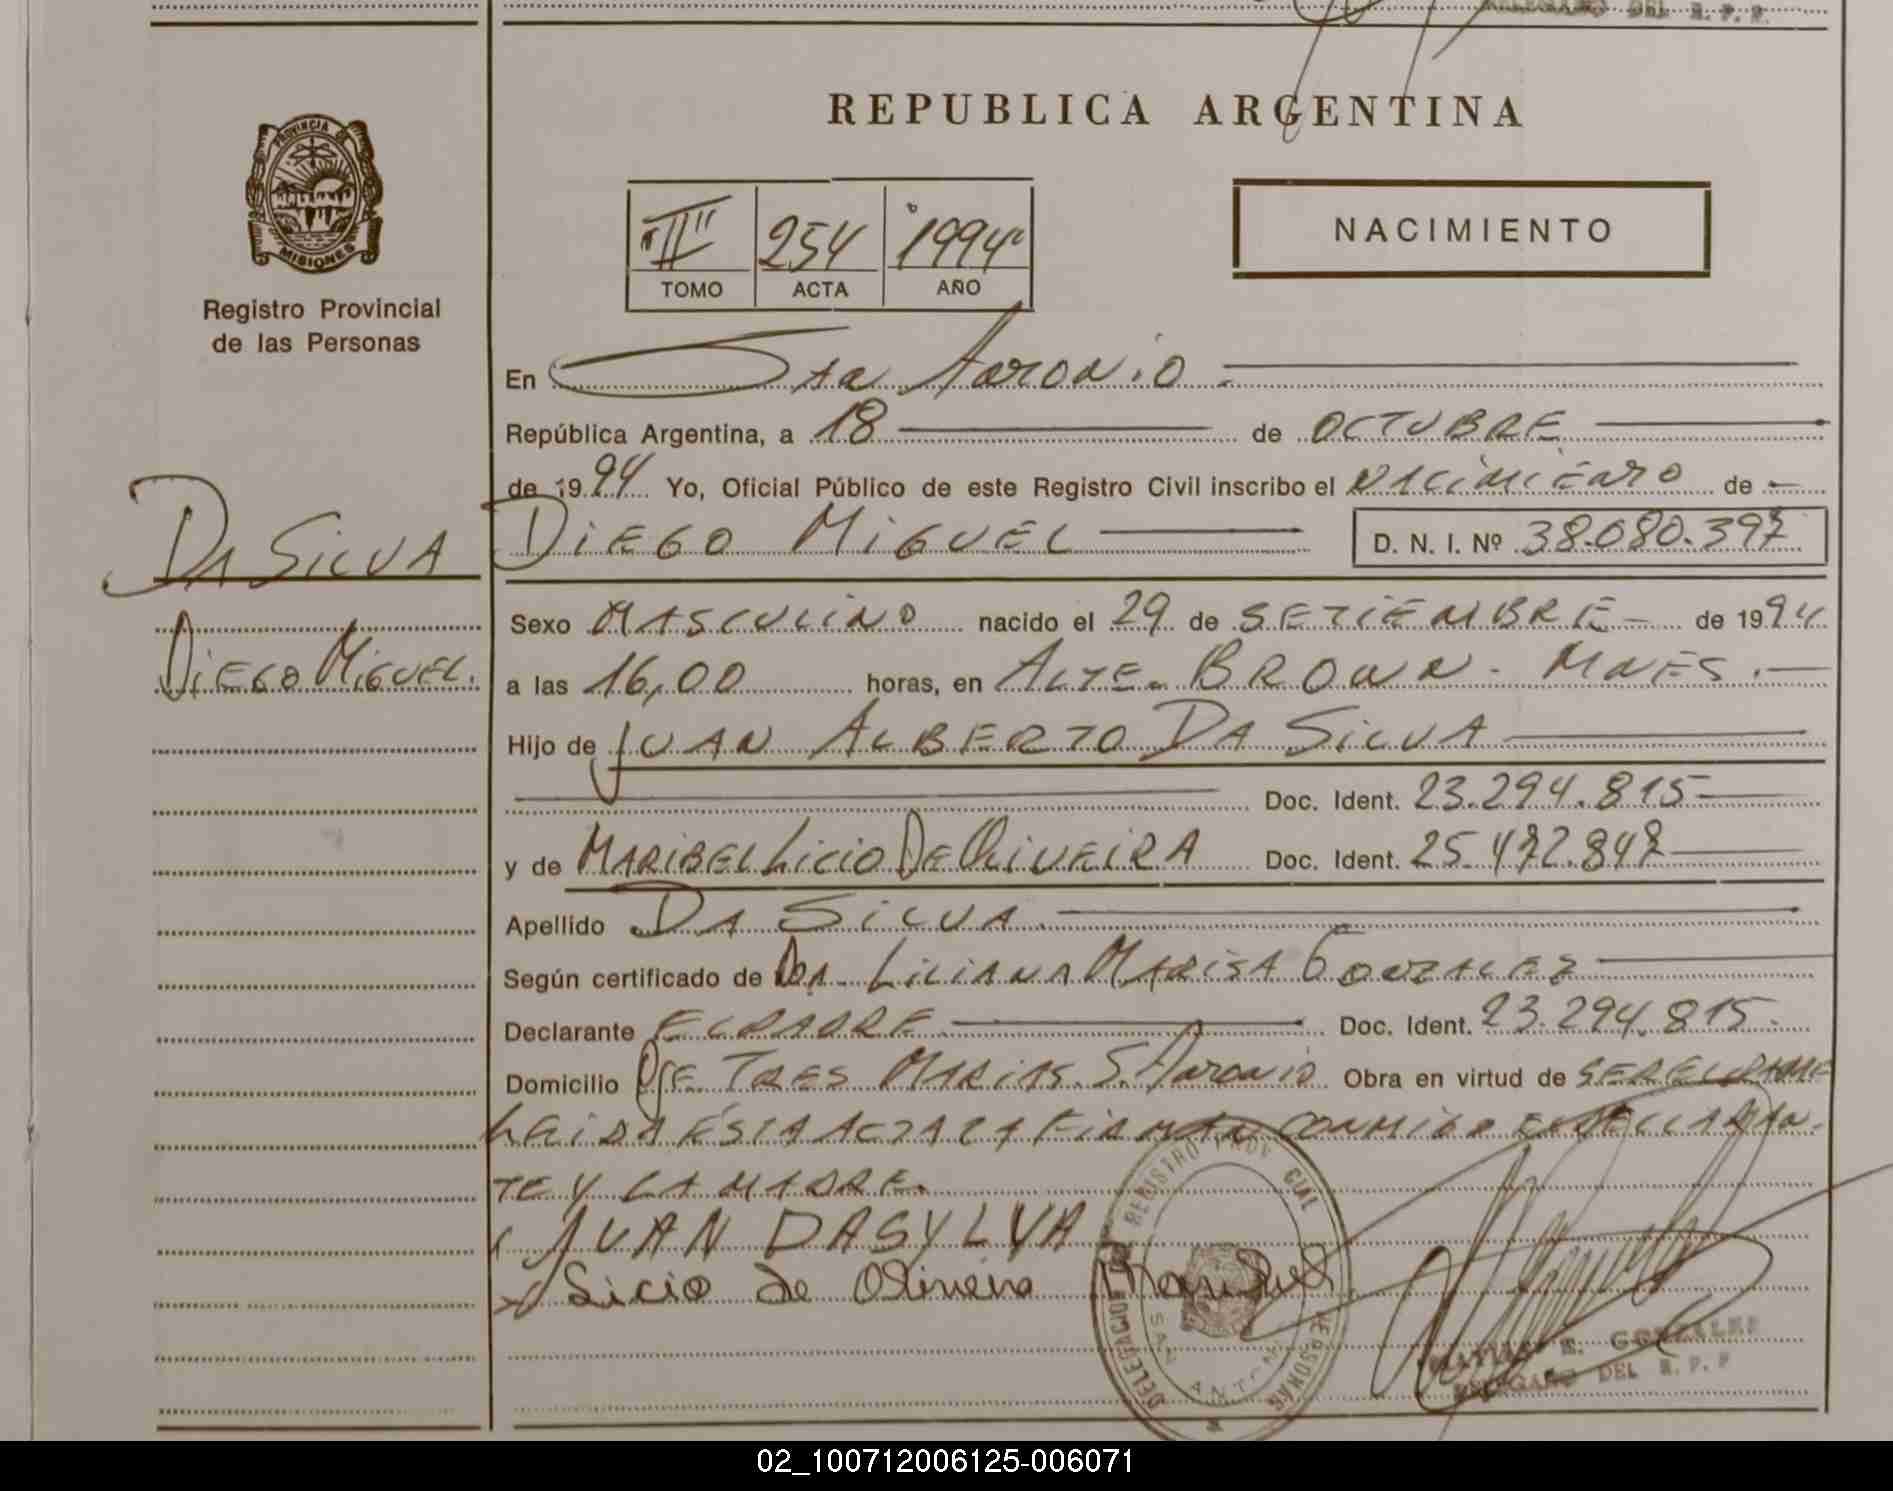 DELEGADO DEL R. P. P.
PROVINCIA DE
MISIONES
Registro Provincial
de las Personas
DA SILVA
DIEGO MIGUEL.
REPUBLICA ARGENTINA
"II" 254 1994
TOMO ACTA AÑO
NACIMIENTO
En San Antonio
República Argentina, a 18 de OCTUBRE
de 1994 Yo, Oficial Público de este Registro Civil inscribo el NACIMIENTO de
DIEGO MIGUEL D. N. I. Nº 38.080.397
Sexo MASCULINO nacido el 29 de SETIEMBRE de 1994
a las 16,00 horas, en ALTE. BROWN - MNES.
Hijo de JUAN ALBERTO DA SILVA
Doc. Ident. 23.294.815
y de MARIBEL LICIO DE OLIVEIRA Doc. Ident. 25.472.847
Apellido DA SILVA
Según certificado de DRA. LILIANA MARISA GONZALEZ
Declarante EL PADRE Doc. Ident. 23.294.815.
Domicilio PJE TRES MARIAS. S. Antonio Obra en virtud de SER EL PADRE
LEIDA ESTA ACTA LA FIRMAN CONMIGO EL DECLARAN-
TE Y LA MADRE.
JUAN DASYLVA
Licio de Olivera Maribel
DELEGACION REGISTRO PROVINCIAL PERSONAS
SAN ANTONIO
E. GONZALEZ
DELEGADO DEL R. P. P.
02_100712006125-006071